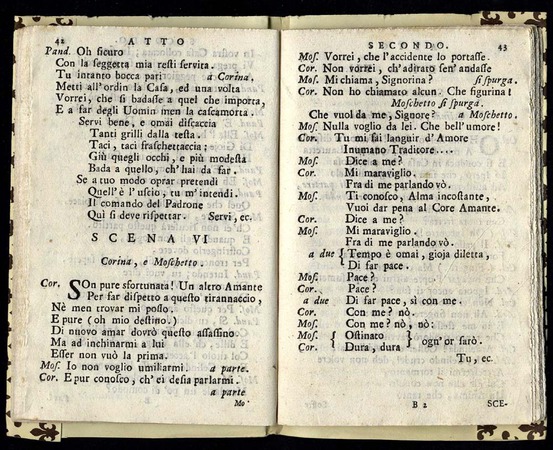 42 ATTO
Pand. Oh sicuro
Con la seggetta mia resti servita.
Tu intanto bocca pari a Corina.
Metti all'ordin la Casa, ed una volta
Vorrei, che si badasse a quel che importa,
E a far degli Uomin men la cascamorta.
Servi bene, e omai discaccia
Tanti grilli dalla testa.
Taci, taci fraschettaccia;
Giù quegli occhi, e più modesta
Bada a quello, ch'hai da far.
Se a tuo modo oprar pretendi
Quell'è l'uscio, tu m'intendi.
Il comando del Padrone
Quì si deve rispettar. Servi, ec.
SCENA VI
Corina, e Moschetto.
Cor. SOn pure sfortunata! Un altro Amante
Per far dispetto a questo tirannaccio,
Nè men trovar mi posso.
E pure (oh mio destino!)
Di nuovo amar dovrò questo assassino.
Ma ad inchinarmi a lui
Esser non vuò la prima.
Mos. Io non voglio umiliarmi. a parte.
Cor. E pur conosco, ch'ei desia parlarmi.
a parte
Mo-
SECONDO. 43
Mos. Vorrei, che l'accidente lo portasse.
Cor. Non vorrei, ch'adirato sen'andasse
Mos. Mi chiama, Signorina? si spurga.
Cor. Non ho chiamato alcun. Che figurina!
Moschetto si spurga.
Che vuol da me, Signore? a Moschetto.
Mos. Nulla voglio da lei. Che bell'umore!
Cor. Tu mi fai languir d'Amore
Inumano Traditore....
Mos. Dice a me?
Cor. Mi maraviglio.
Fra di me parlando vò.
Mos. Ti conosco, Alma incostante,
Vuoi dar pena al Core Amante.
Cor. Dice a me?
Mos. Mi maraviglio.
Fra di me parlando vò.
a due { Tempo è omai, gioja diletta,
Di far pace.
Mos. Pace?
Cor. Pace?
a due Di far pace, sì con me.
Cor. Con me? nò.
Mos. Con me? nò, nò:
Mos. { Ostinato } ogn'or sarò.
Cor. Dura, dura
Tu, ec.
B 2 SCE-